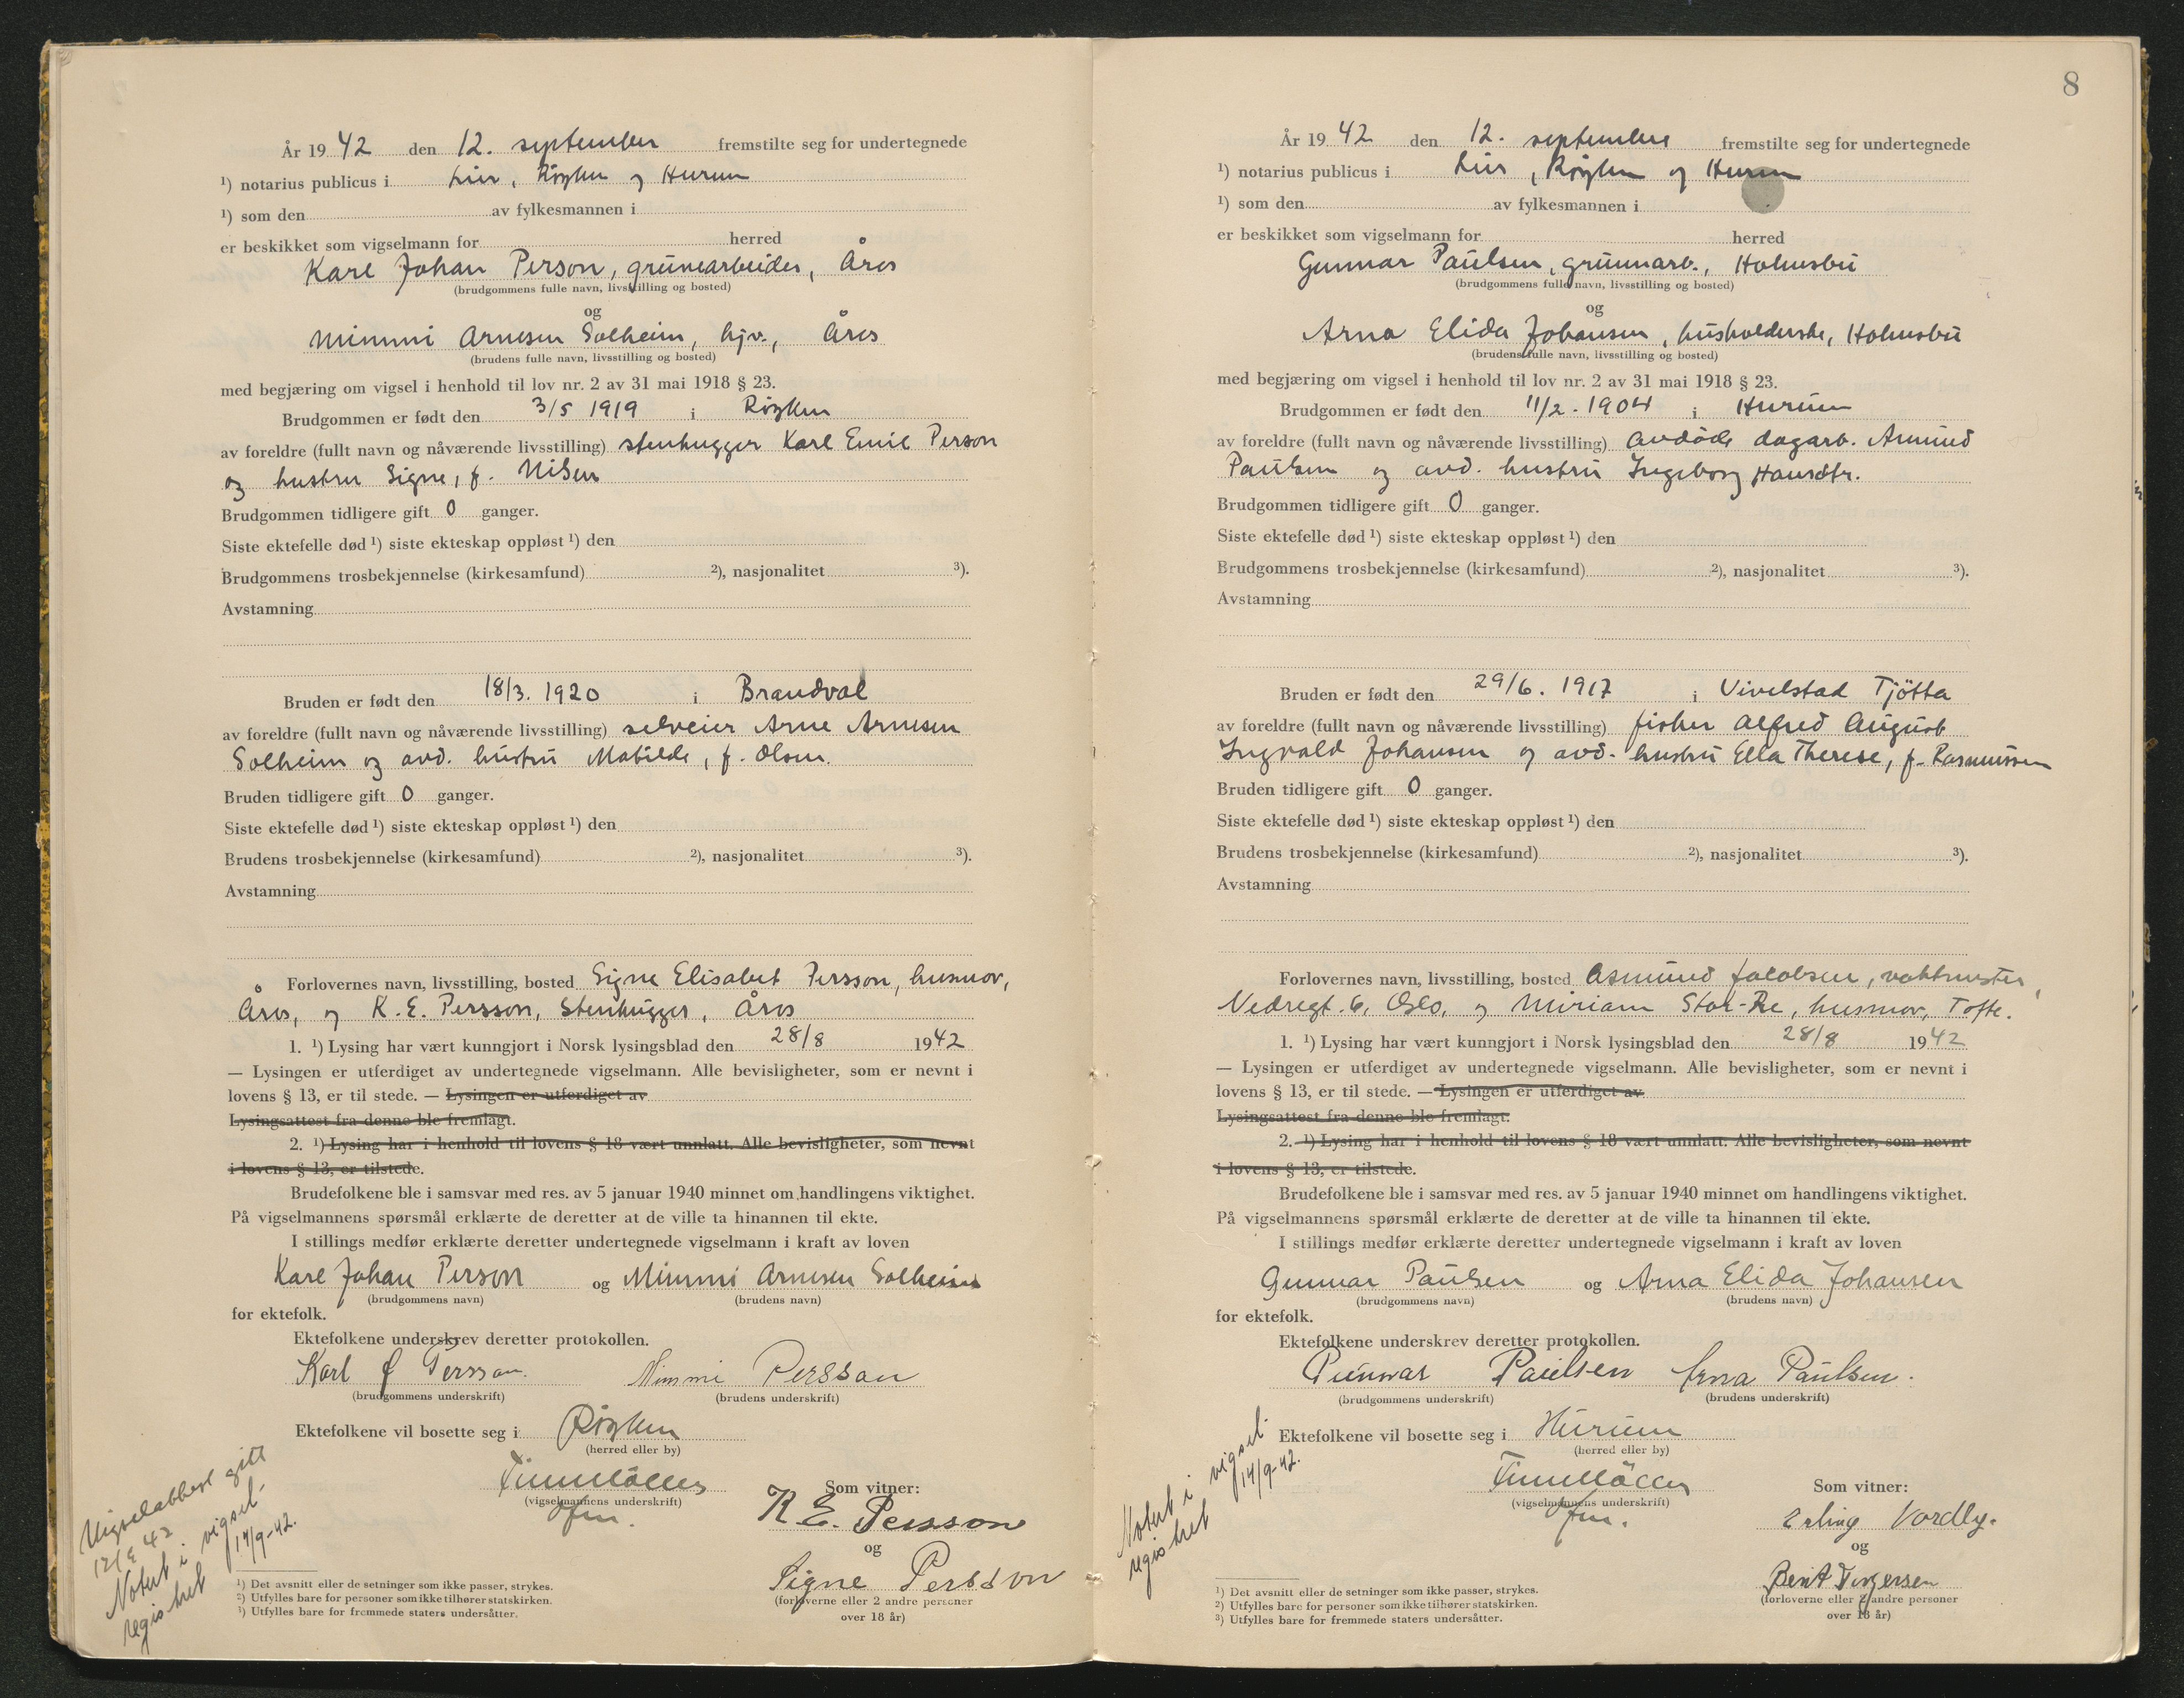 År 19 42 den 12. september fremstilte seg for undertegnede
¹) notarius publicus i Lier, Røyken og Hurum
¹) som den av fylkesmannen i
er beskikket som vigselmann for herred
Karl Johan Person, grunearbeider, Åros
(brudgommens fulle navn, livsstilling og bosted)
og
Mimmi Arnesen Solheim, hjv., Åros
(brudens fulle navn, livsstilling og bosted)
med begjæring om vigsel i henhold til lov nr. 2 av 31 mai 1918 § 23.
Brudgommen er født den 3/5 1919 i Røyken
av foreldre (fullt navn og nåværende livsstilling) stenhugger Karl Emil Person
og hustru Signe, f. Nilsen
Brudgommen tidligere gift 0 ganger.
Siste ektefelle død ¹) siste ekteskap oppløst ¹) den
Brudgommens trosbekjennelse (kirkesamfund) ²), nasjonalitet ³).
Avstamning
Bruden er født den 18/3. 1920 i Brandval
av foreldre (fullt navn og nåværende livsstilling) selveier Arne Arnesen
Solheim og avd. hustru Mathilde, f. Olsen.
Bruden tidligere gift 0 ganger.
Siste ektefelle død ¹) siste ekteskap oppløst ¹) den
Brudens trosbekjennelse (kirkesamfund) ²), nasjonalitet ³).
Avstamning
Forlovernes navn, livsstilling, bosted Signe Elisabet Persson, husmor,
Åros, og K. E. Persson, Stenhugger, Åros
1. ¹) Lysing har vært kunngjort i Norsk lysingsblad den 28/8 1942
— Lysingen er utferdiget av undertegnede vigselmann. Alle bevisligheter, som er nevnt i
lovens § 13, er til stede. — Lysingen er utferdiget av
Lysingsattest fra denne ble fremlagt.
2. ¹) Lysing har i henhold til lovens § 18 vært unnlatt. Alle bevisligheter, som nevnt
i lovens § 13, er tilstede.
Brudefolkene ble i samsvar med res. av 5 januar 1940 minnet om handlingens viktighet.
På vigselmannens spørsmål erklærte de deretter at de ville ta hinannen til ekte.
I stillings medfør erklærte deretter undertegnede vigselmann i kraft av loven
Karl Johan Person og Mimmi Arnesen Solheim
(brudgommens navn) (brudens navn)
for ektefolk.
Ektefolkene underskrev deretter protokollen.
Karl J Persson. Mimmi Persson
(brudgommens underskrift) (brudens underskrift)
Ektefolkene vil bosette seg i Røyken
(herred eller by)
(vigselmannens underskrift)
Som vitner:
K E. Persson
og
Signe Persson
(forloverne eller 2 andre personer
over 18 år)
Vigselattest gitt
12/9 42
Notert i vigsel-
registret 14/9-42.
¹) Det avsnitt eller de setninger som ikke passer, strykes.
²) Utfylles bare for personer som ikke tilhører statskirken.
³) Utfylles bare for fremmede staters undersåtter.
8
År 19 42 den 12. september fremstilte seg for undertegnede
¹) notarius publicus i Lier, Røyken og Hurum
¹) som den av fylkesmannen i
er beskikket som vigselmann for herred
Gunnar Paulsen, grunnarb., Holmsbu
(brudgommens fulle navn, livsstilling og bosted)
og
Arna Elida Johansen, husholderske, Holmsbu
(brudens fulle navn, livsstilling og bosted)
med begjæring om vigsel i henhold til lov nr. 2 av 31 mai 1918 § 23.
Brudgommen er født den 11/2 - 1904 i Hurum
av foreldre (fullt navn og nåværende livsstilling) avdøde dagarb. Amund
Paulsen og avd. hustru Ingeborg Hansdtr.
Brudgommen tidligere gift 0 ganger.
Siste ektefelle død ¹) siste ekteskap oppløst ¹) den
Brudgommens trosbekjennelse (kirkesamfund) ²), nasjonalitet ³).
Avstamning
Bruden er født den 29/6. 1917 i Vivelstad Tjötta
av foreldre (fullt navn og nåværende livsstilling) fisker Alfred August
Ingvald Johansen og avd. hustru Ella Therese, f. Rasmussen
Bruden tidligere gift 0 ganger.
Siste ektefelle død ¹) siste ekteskap oppløst ¹) den
Brudens trosbekjennelse (kirkesamfund) ²), nasjonalitet ³).
Avstamning
Forlovernes navn, livsstilling, bosted Asmund Jacobsen, vaktmester,
Nedregt. 6, Oslo, og Miriam Stor-Re, husmor, Tofte.
1. ¹) Lysing har vært kunngjort i Norsk lysingsblad den 28/8 1942
— Lysingen er utferdiget av undertegnede vigselmann. Alle bevisligheter, som er nevnt i
lovens § 13, er til stede. — Lysingen er utferdiget av
Lysingsattest fra denne ble fremlagt.
2. ¹) Lysing har i henhold til lovens § 18 vært unnlatt. Alle bevisligheter, som nevnt
i lovens § 13, er tilstede.
Brudefolkene ble i samsvar med res. av 5 januar 1940 minnet om handlingens viktighet.
På vigselmannens spørsmål erklærte de deretter at de ville ta hinannen til ekte.
I stillings medfør erklærte deretter undertegnede vigselmann i kraft av loven
Gunnar Paulsen og Arna Elida Johansen
(brudgommens navn) (brudens navn)
for ektefolk.
Ektefolkene underskrev deretter protokollen.
Gunnar Paulsen Arna Paulsen.
(brudgommens underskrift) (brudens underskrift)
Ektefolkene vil bosette seg i Hurum
(herred eller by)
(vigselmannens underskrift)
Som vitner:
Erling Nordby.
og
Berit Torgersen
(forloverne eller 2 andre personer
over 18 år)
Notert i vigsel-
registret 14/9-42.
¹) Det avsnitt eller de setninger som ikke passer, strykes.
²) Utfylles bare for personer som ikke tilhører statskirken.
³) Utfylles bare for fremmede staters undersåtter.